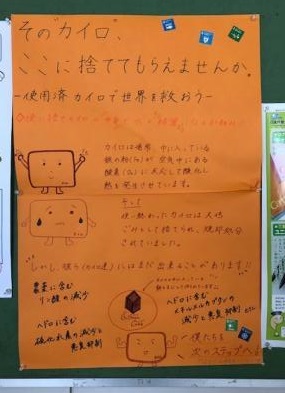 その"カイロ"、
ここに捨ててもらえませんか。
-使用済カイロで世界を救おう-
カイロは通常、中に入っている
鉄の粉(Fe)が空気中にある
酸素(O₂)に反応して酸化し
熱を発生させています。
そして
使い終わったカイロは大体
ごみとして捨てられ、焼却処分
されていました。
"しかし、僕ら(カイロ達)にはまだ出来ることがあります!!"
農業に含む
リン酸の減少
ヘドロに含む
硫化水素の減少と
悪臭抑制
ヘドロに含む
メチルメルカプタンの
減少と悪臭抑制
僕たちを
次のステップへ